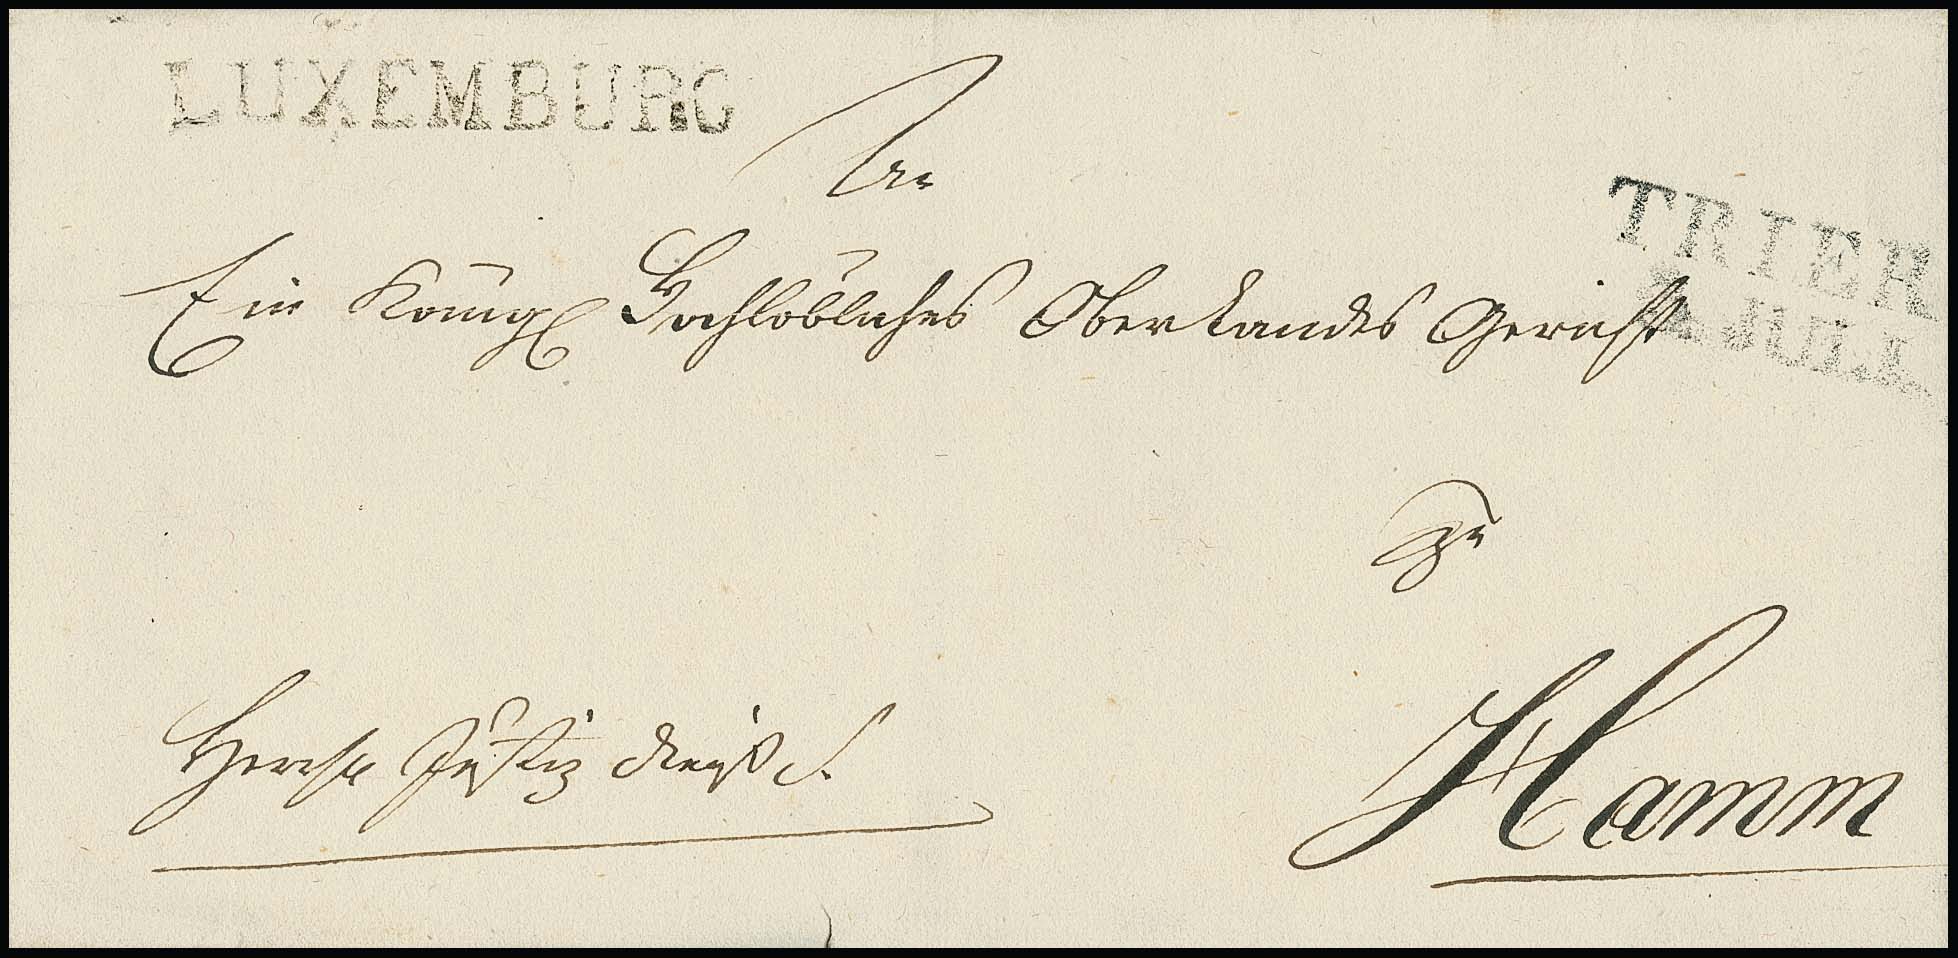 LUXEMBURG
An
TRIER
JULI
Ein Königl Hochlöbliches Oberlandes Gericht
zu
Hamm
Herrsch Justiz dienst S.